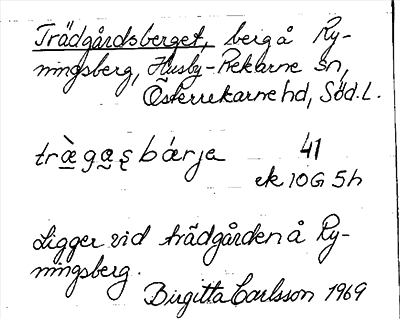 Trädgårdsberget, berg å Ry-
ningsberg, Husby-Rekarne sn,
Österrekarne hd, Söd. L.
träg̀as bǽrja 41
ek 10G 5h
Ligger vid trädgården å Ry-
ningsberg.
Birgitta Carlsson 1969